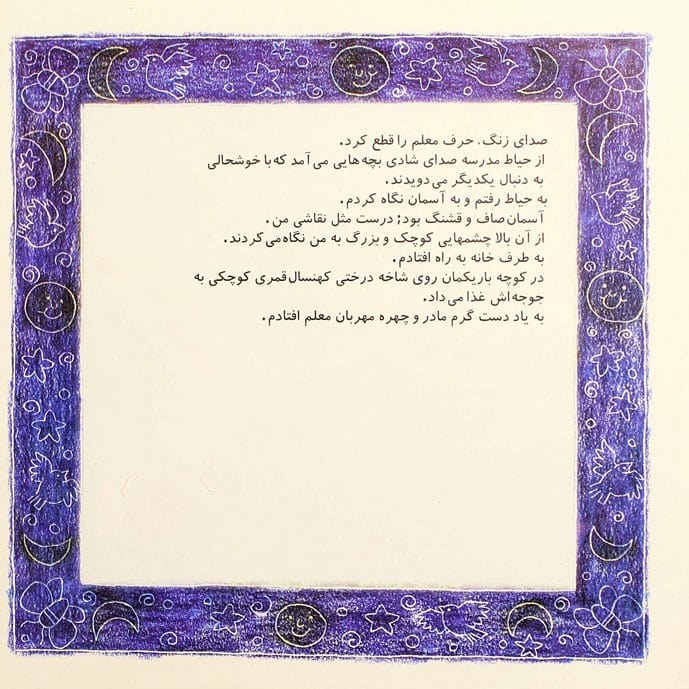 صدای زنگ، حرف معلم را قطع کرد.
از حیاط مدرسه صدای شادی بچه‌هایی می‌آمد که با خوشحالی
به دنبال یکدیگر می‌دویدند.
به حیاط رفتم و به آسمان نگاه کردم.
آسمان صاف و قشنگ بود؛ درست مثل نقاشی من.
از آن بالا چشمهایی کوچک و بزرگ به من نگاه می‌کردند.
به طرف خانه به راه افتادم.
در کوچه باریکمان روی شاخه درختی کهنسال قمری کوچکی به
جوجه‌اش غذا می‌داد.
به یاد دست گرم مادر و چهره مهربان معلم افتادم.